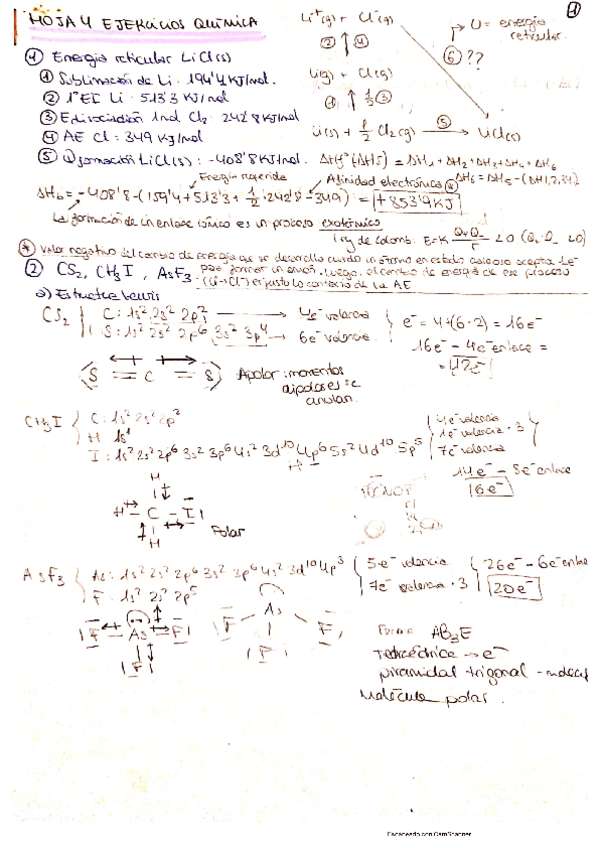 HOJA 4 EJERCICIOS QUÍMICA
1
Li⁺(g) + Cl⁻(g)
U = energía reticular.
② ④
⑥ ??
① Energía reticular LiCl(s)
① Sublimación de Li: 159'4 KJ/mol.
② 1ª EI Li: 513'3 KJ/mol
③ Edisociación 1mol Cl₂: 242'8 KJ/mol
④ AE Cl: 349 KJ/mol
⑤ Qformación LiCl(s): -408'8 KJ/mol.
Li(g) + Cl(g)
① ½③
Li(s) + ½ Cl₂(g) ⑤ LiCl(s)
ΔHf° (ΔH5) = ΔH1 + ΔH2 + ΔH3 + ΔH4 + ΔH6
Energía requerida
Afinidad electrónica ⊛
ΔH6 = ΔH5 - (ΔH1,2,3,4)
ΔH6 = -408'8 - (159'4 + 513'3 + ½ · 242'8 - 349) = -853'9 KJ
La formación de un enlace iónico es un proceso exotérmico
Ley de Coulomb. E = K Q₊Q₋/r < 0 (Q₊ · Q₋ < 0)
⊛ Valor negativo del cambio de energía que se desarrolla cuando un átomo en estado gaseoso acepta 1e⁻
para formar un anión. Luego, el cambio de energía de ese proceso
es justo lo contrario de la AE
② CS₂, CH₃I, AsF₃
a) Estructura Lewis
CS₂ C: 1s² 2s² 2p² → 4e⁻ valencia
S: 1s² 2s² 2p⁶ 3s² 3p⁴ → 6e⁻ valencia
e⁻ = 4 + (6·2) = 16e⁻
16e⁻ - 4e⁻ enlace =
= 12e⁻
S = C = S
Apolar: momentos dipolares se anulan.
CH₃I C: 1s² 2s² 2p²
H 1s¹
I: 1s² 2s² 2p⁶ 3s² 3p⁶ 4s² 3d¹⁰ 4p⁶ 5s² 4d¹⁰ 5p⁵
4e⁻ valencia
1e⁻ valencia · 3
7e⁻ valencia
14e⁻ - 8e⁻ enlace
H
H C - I
H
Polar
AsF₃ As: 1s² 2s² 2p⁶ 3s² 3p⁶ 4s² 3d¹⁰ 4p³
F: 1s² 2s² 2p⁵
5e⁻ valencia
7e⁻ valencia · 3
26e⁻ - 6e⁻ enlace
20e⁻
F - As - F
F
As
F F
F
Forma AB₃E
Tetraédrica → e⁻
piramidal trigonal - molécula
Molécula polar.
Escaneado con CamScanner